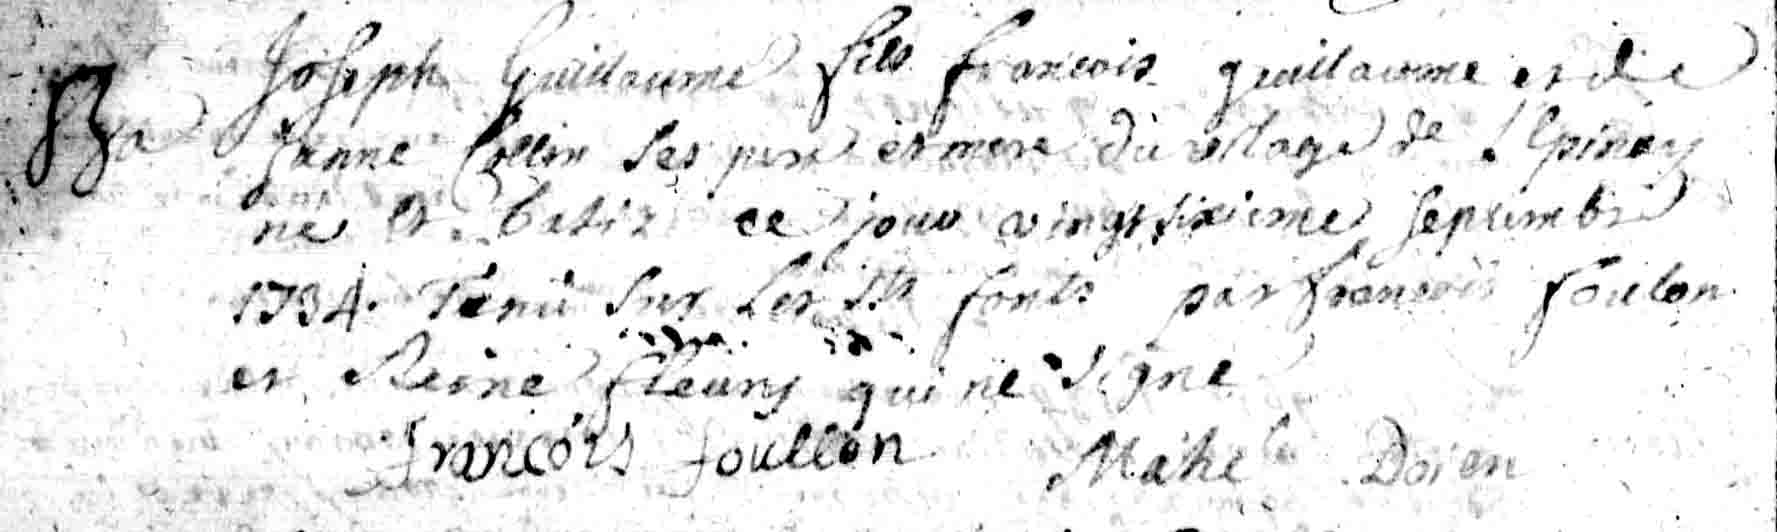 Ba
Joseph Guillaume fils francois guillaume et de
Janne Collin ses pere et mere du vilage de l'Epinay
né et batiz ce jour vingt sixieme septembre
1734. Tenü sur les sts fonts par francois foulon
et Reine fleury qui ne signe
francois foullon Mahé Doien